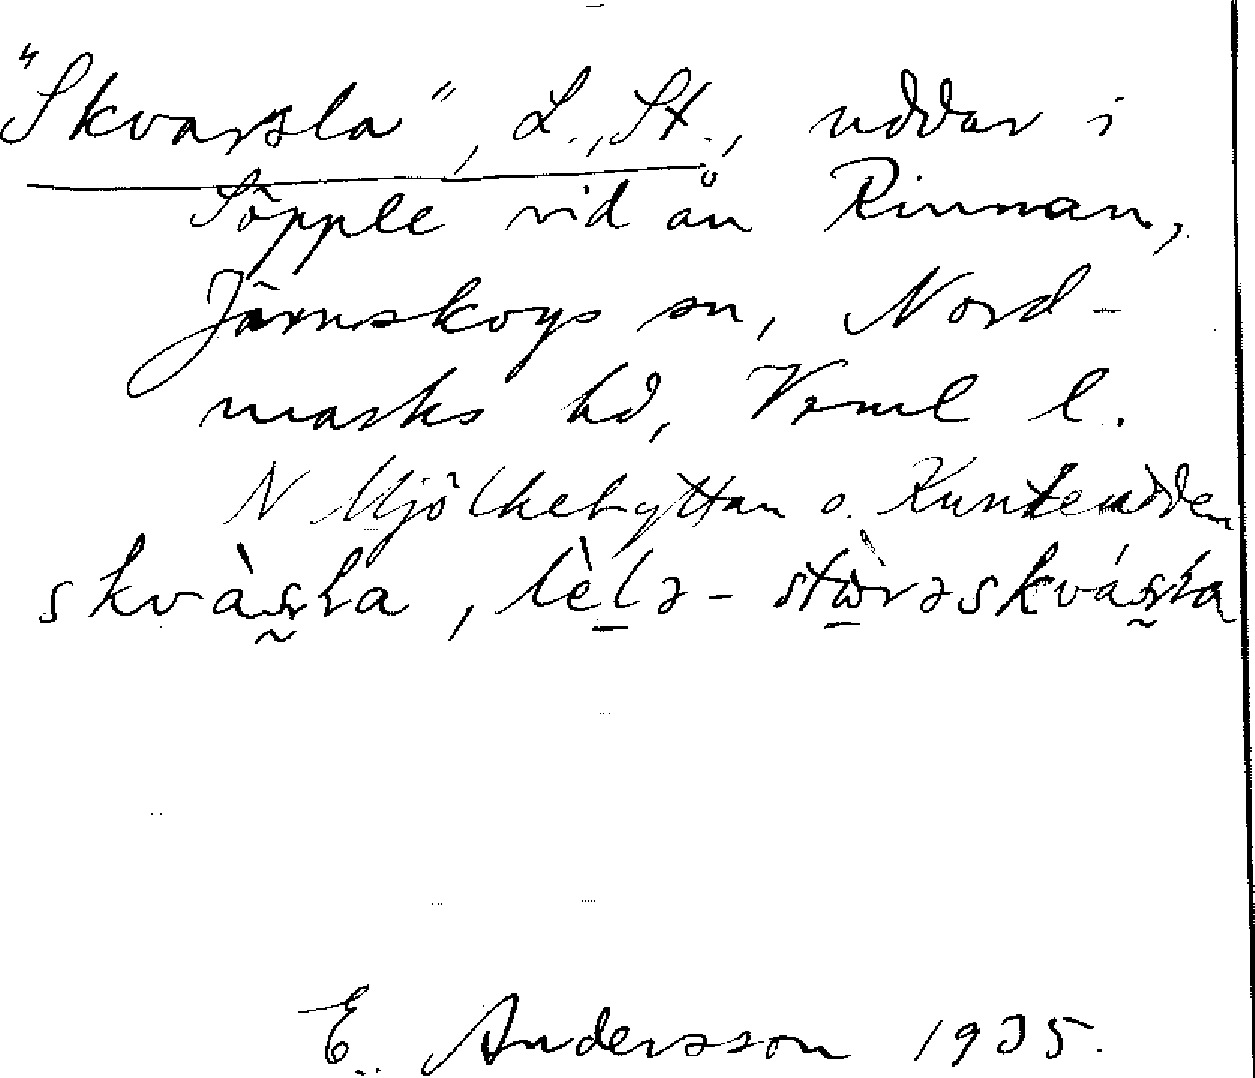 "Skvarsla", L., St., uddar i
Söpple vid ån Rinnan,
Järnskogs sn, Nord-
marks hd, Verml l.
N Mjölkehyttan o.
skvàsḷa, lèlə- stòrəskvásḷa
E. Andersson 1935.